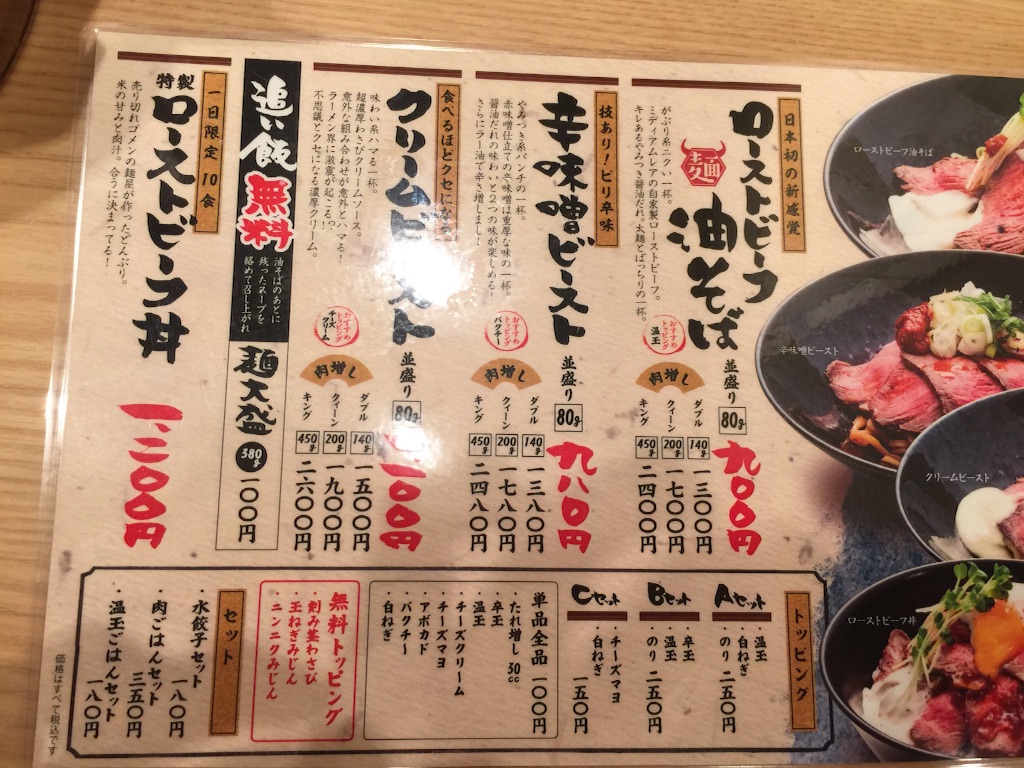 日本初の新感覚
ローストビーフ
油そば
がぶり系ニクい一杯。
ミディアムレアの自家製ローストビーフ。
キレあるやみつき醤油だれ。太麺とばっちりの一杯。
おすすめ
トッピング
温玉
並盛り
80g
九〇〇円
肉増し
ダブル
140g
一三〇〇円
クィーン
200g
一七〇〇円
キング
450g
二四〇〇円
技あり!ピリ辛味
辛味噌ビースト
やみつき系パンチの一杯。
赤味噌仕立ての辛味噌は重厚な味の一杯。
醤油だれの味わいと2つの味が楽しめる!
さらにラー油で辛さ増しまし!
おすすめ
トッピング
パクチー
並盛り
80g
九八〇円
肉増し
ダブル
140g
一三八〇円
クィーン
200g
一七八〇円
キング
450g
二四八〇円
食べるほどクセになる
クリームビースト
味わい系ハマる一杯。
超濃厚わさびクリームソース。
意外な組み合わせが意外とハマる!
ラーメン界に激震が起こる!?
不思議とクセになる濃厚クリーム。
おすすめ
トッピング
チーズ
クリーム
並盛り
80g
一一〇〇円
肉増し
ダブル
140g
一五〇〇円
クィーン
200g
一九〇〇円
キング
450g
二六〇〇円
追い飯
無料
油そばのあとに
残ったスープを
絡めて召し上がれ
麺大盛
380g
一〇〇円
一日限定10食
特製
ローストビーフ丼
売り切れゴメンの麺屋が作ったどんぶり。
米の甘みと肉汁。合うに決まってる!
一、二〇〇円
トッピング
Aセット
・温玉
・白ねぎ
・のり
二五〇円
Bセット
・辛玉
・温玉
・のり
二五〇円
Cセット
・チーズマヨ
・白ねぎ
一五〇円
単品全品
一〇〇円
・たれ増し 30cc
・辛玉
・温玉
・チーズクリーム
・チーズマヨ
・アボカド
・パクチー
・白ねぎ
無料トッピング
・刻み茎わさび
・玉ねぎみじん
・ニンニクみじん
セット
・水餃子セット
一八〇円
・肉ごはんセット
三五〇円
・温玉ごはんセット
一八〇円
価格はすべて税込です
ローストビーフ油そば
辛味噌ビースト
クリームビースト
ローストビーフ丼